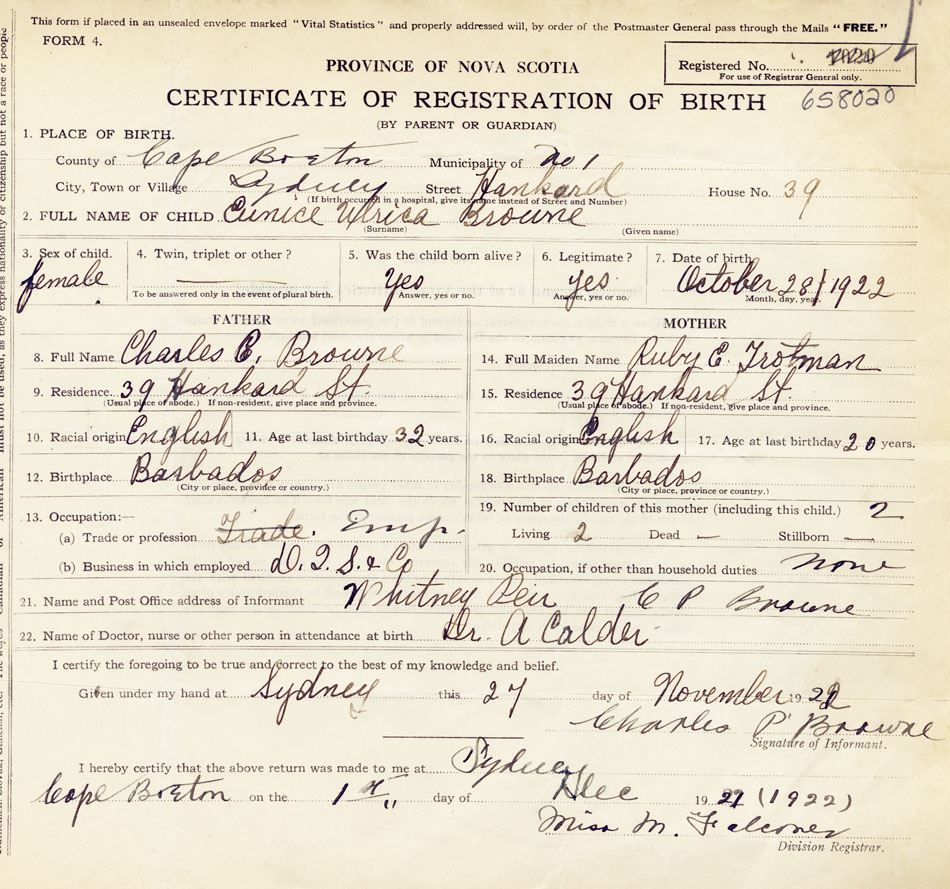 This form if placed in an unsealed envelope marked "Vital Statistics" and properly addressed will, by order of the Postmaster General pass through the Mails "FREE."
FORM 4.
Registered No.
For use of Registrar General only.
PROVINCE OF NOVA SCOTIA
CERTIFICATE OF REGISTRATION OF BIRTH 658020
(BY PARENT OR GUARDIAN)
1. PLACE OF BIRTH.
County of Cape Breton Municipality of No 1
City, Town or Village Sydney Street Hankard House No. 39
(If birth occurred in a hospital, give its name instead of Street and Number)
2. FULL NAME OF CHILD Eunice Ulrica Browne
(Surname) (Given name)
3. Sex of child. 4. Twin, triplet or other? 5. Was the child born alive? 6. Legitimate? 7. Date of birth
female — Yes yes October 28/1922
To be answered only in the event of plural birth. Answer, yes or no. Answer, yes or no. Month, day, year.
FATHER MOTHER
8. Full Name Charles C. Browne 14. Full Maiden Name Ruby E. Trotman
9. Residence 39 Hankard St. 15. Residence 39 Hankard St.
(Usual place of abode.) If non-resident, give place and province. (Usual place of abode.) If non-resident, give place and province.
10. Racial origin English 11. Age at last birthday 32 years. 16. Racial origin English 17. Age at last birthday 20 years.
12. Birthplace Barbados 18. Birthplace Barbados
(City or place, province or country.) (City or place, province or country.)
13. Occupation:— 19. Number of children of this mother (including this child.) 2
(a) Trade or profession Trade. Emp. Living 2 Dead — Stillborn —
(b) Business in which employed D. I. S. & Co 20. Occupation, if other than household duties None
21. Name and Post Office address of Informant Whitney Peir C P Browne
22. Name of Doctor, nurse or other person in attendance at birth Dr. A Calder
I certify the foregoing to be true and correct to the best of my knowledge and belief.
Given under my hand at Sydney this 27 day of November 1922
Charles P Browne
Signature of Informant.
I hereby certify that the above return was made to me at Sydney
Cape Breton on the 1st day of Dec 19 (1922)
Miss M. Falconer
Division Registrar.